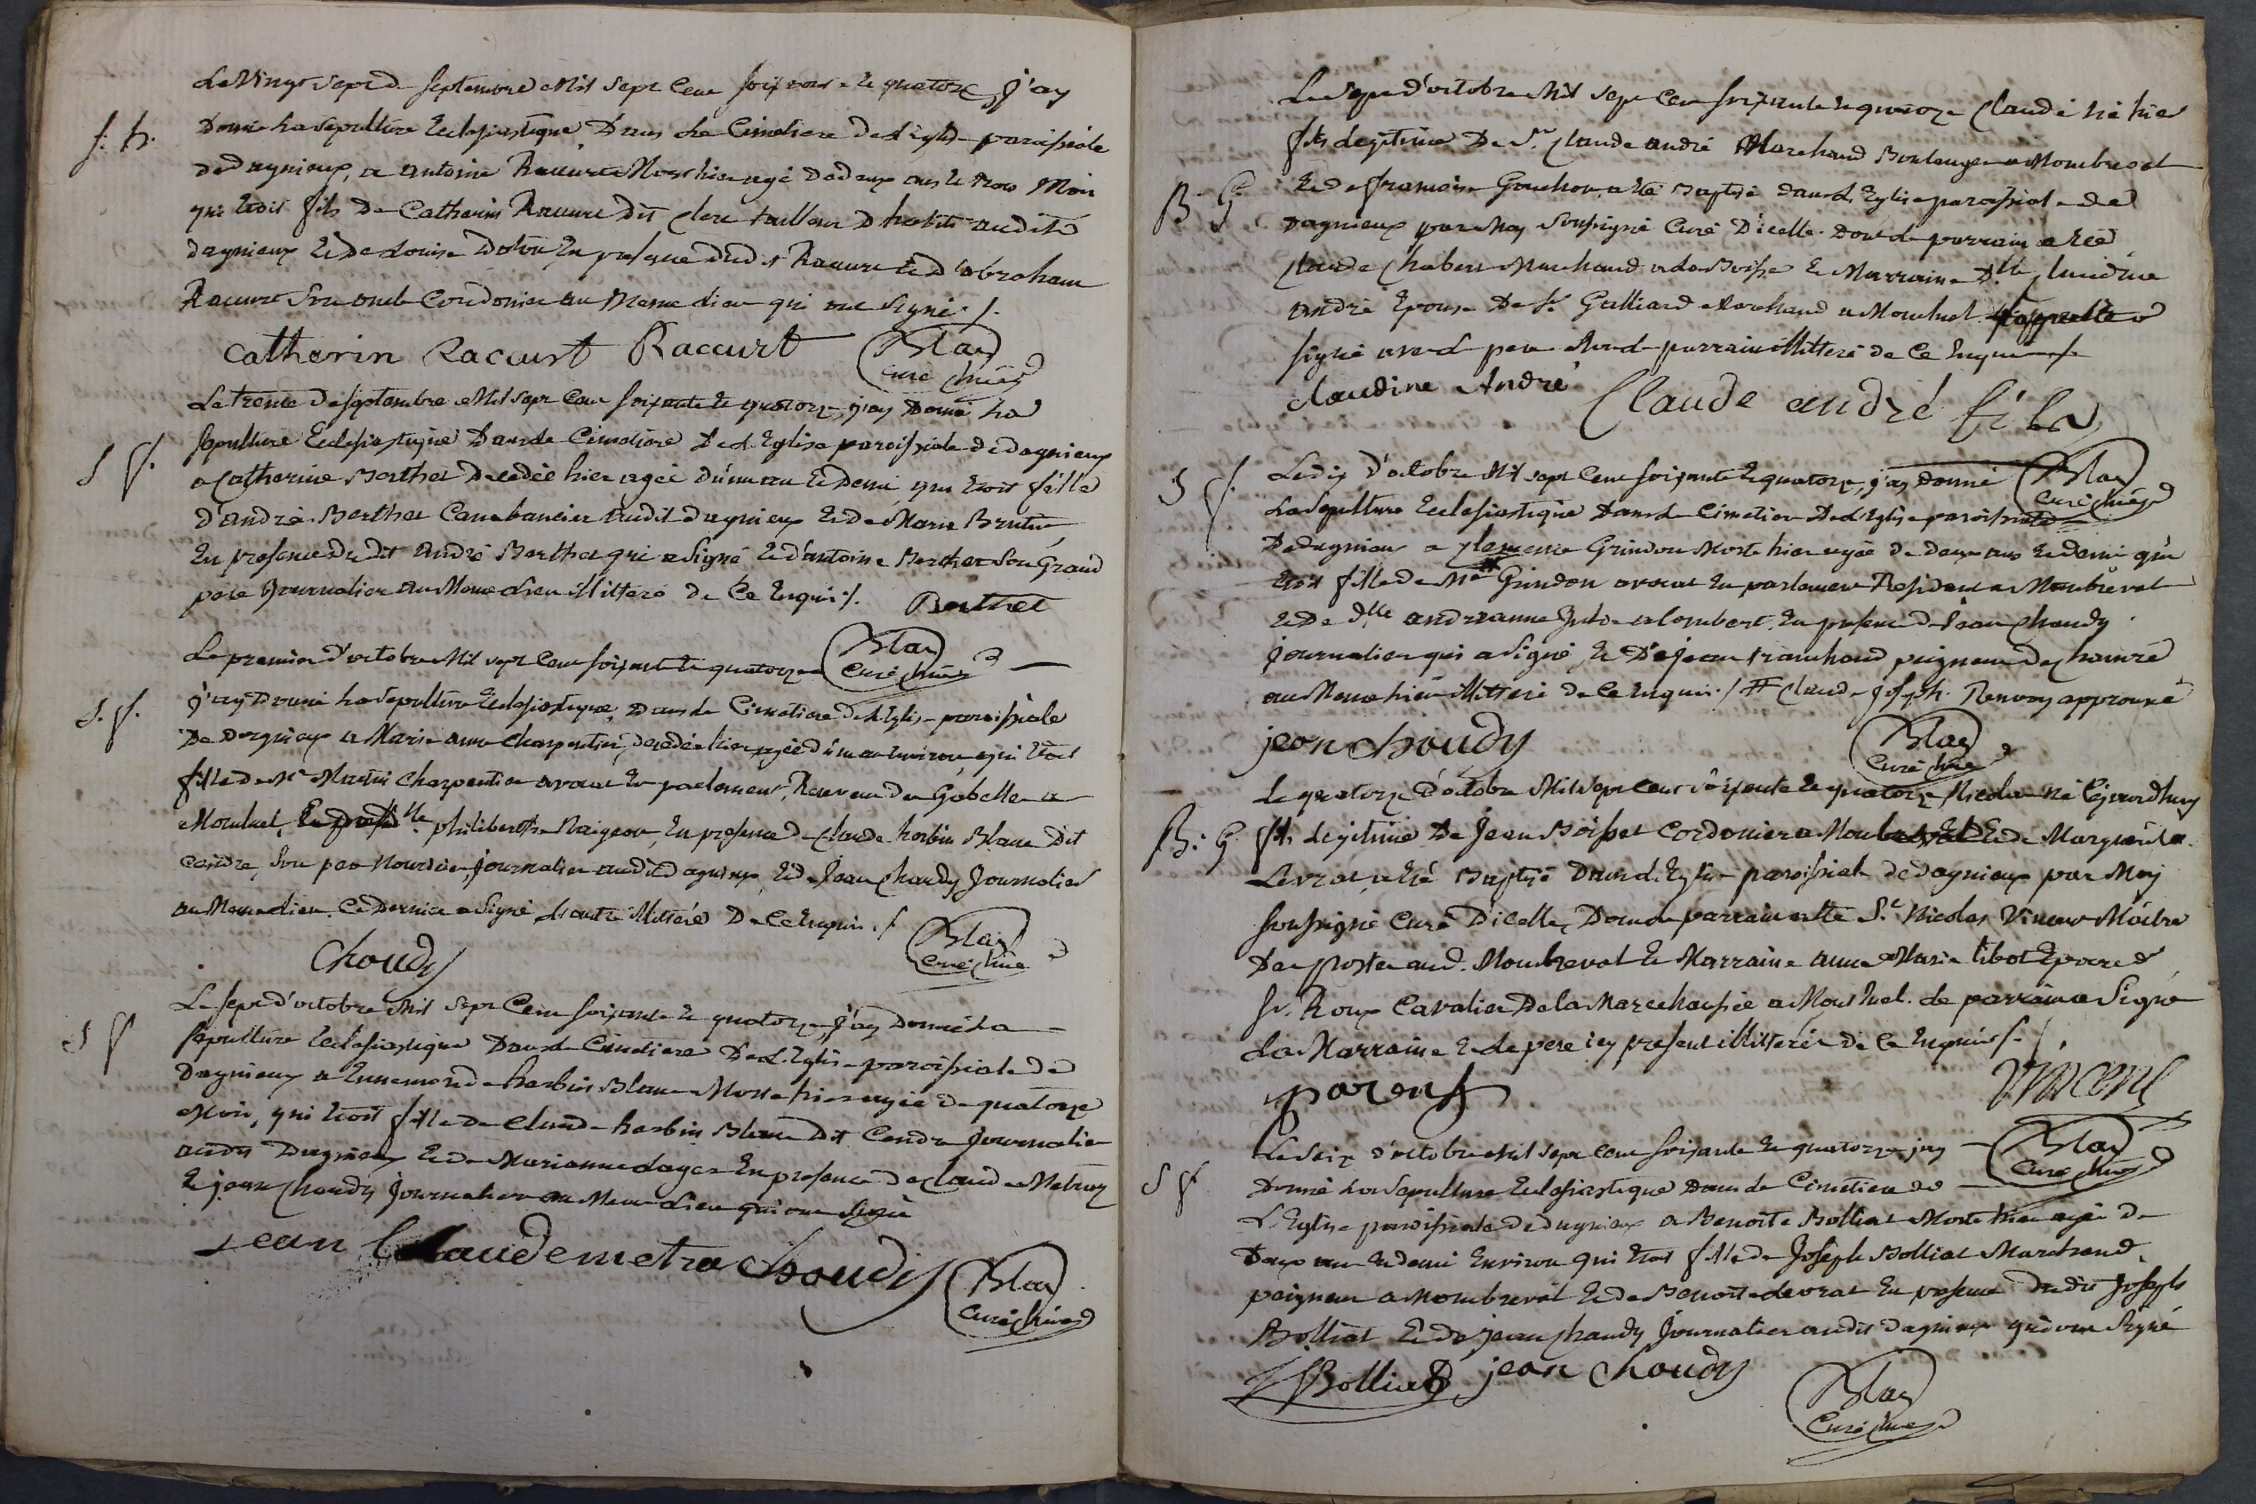 Le Vingt sept de septembre Mil sept Cent soixante et quatorze j'ay
S. h.
Donné la sepulture Eclesiastique Dans le Cimetiere de l'Eglise paroissiale
de dagnieux, a antoine Raccurt Mort hier agé de deux ans et trois Mois
qui etoit fils De Catherin Raccurt dit Clerc tailleur D'habits audit
dagnieux et De Louise En presence dud. st Raccurt et d'abraham
Raccurt Son oncle Cordonier au Meme Lieu qui ont Signé ./.
Catherin Raccurt Raccurt Blay
Curé
Le trente De septembre Mil sept Cent soixante et quatorze, j'ay Donné La
S f.
sepulture Eclesiastique Dans le Cimetiere De L'Eglise paroissiale de dagnieux
a Catherine Berthet Decedée hier agée d'un an et Demi, qui etoit fille
d'andré Berthet Cabaretier audit dagnieux et de Marie
En presence du dit andré Berthet qui a Signé et d'antoine Berthet Son Grand
pere Journalier au Meme Lieu illitteré De Ce Enquis ./. Berthet
Blay
Curé
Le premier d'octobre Mil sept Cent soixante et quatorze
S. f.
j'ay Donné La Sepulture Eclesiastique, Dans le Cimetiere de L'Eglise paroissiale
De Dagnieux a Marie anne Charpentier, decedée hier agée d'un an Environ, qui etoit
fille de Me Martin Charpentier avocat En parlement, Receveur des Gabelles a
Montluel, philiberthe En presence de Claude harbin Blanc Dit
Cendre, Son pere Nouricier Journalier audit Dagnieux, et de Jean Chaudy Journalier
au Meme Lieu. Ce Dernier a Signé L'autre illitteré De Ce Enquis ./.
Choudy Blay
Curé
Le sept d'octobre Mil sept Cent soixante et quatorze, j'ay Donné La
S f
sepulture Eclesiastique Dans le Cimetiere De L'Eglise paroissiale de
Dagnieux a Ennemonde harbin Blanc Morte hier agée de quatorze
Mois, qui etoit fille de Claude harbin Blanc Dit Cendre Journalier
audit Dagnieux et de Marianne En presence de Claude Metra
et jean Chaudy Journalier au Meme Lieu qui ont Signé
Jean Claude metra Choudy Blay
Curé
Le Sept d'octobre Mil sept Cent soixante et quatorze Claude né hier
fils Legitime De Sr Claude andré Marchand Boulanger a Montluel
B. G.
et de francoise Gouchon a eté Baptisé dans L'Eglise paroissiale de
Dagnieux par Moy Soussigné Curé D'icelle. Dont Le parrain a eté
Claude Chabert Marchand a La Boisse et Marraine Dlle Claudine
andré Epouse De Sr Galliard Marchand a Montluel
Signé avec Le pere et Non Le parrain illitteré de Ce Enquis ./.
Claudine André Claude andré fils
Blay
Curé
S f.
Le dix d'octobre Mil sept Cent soixante et quatorze, j'ay Donné
La Sepulture Eclesiastique Dans le Cimetiere De L'Eglise paroissiale
De dagnieux a Clemence Grindon Morte hier agée de deux ans et demi qui
etoit fille de Me Grindon avocat En parlement Resident a
et De Dlle andreanne Lombert. En presence de Jean Chaudy
Journalier qui a Signé, et De jean tranchand peigneur de Chanvre
au Meme Lieu illitteré de Ce Enquis ./. # Claude Joseph. Renvoy approuvé
jean Choudy Blay
Curé
Le quatorze d'octobre Mil sept Cent soixante et quatorze Nicolas né aujourd'huy
B. G.
fils Legitime De Jean Boisset Cordonier a et de Marguerite
Levrat, a eté Baptisé Dans L'Eglise paroissiale de dagnieux par Moy
Soussigné Curé D'icelle, Dont Le parrain a eté Sr. Nicolas Vincent Maitre
De Poste aud. et Marraine anne Marie tibot Epouse de
Sr. Roux Cavalier De la Marechaussée a Montluel. Le parrain a Signé
La Marraine et Le pere icy present illitterés de Ce Enquis ./.
Vincent
Blay
Curé
Le Seize d'octobre Mil sept Cent soixante et quatorze j'ay
S f
Donné La Sepulture Eclesiastique Dans le Cimetiere de
L'Eglise paroissiale de dagnieux a Benoite Bolliat Morte hier agée de
Deux ans et demi Environ qui etoit fille de Joseph Bolliat Marchand
peigneur a et de Benoite Levrat En presence du dit Joseph
Bolliat et de jean Chaudy Journalier audit dagnieux qui ont Signé
Bolliat jean Choudy
Blay
Curé